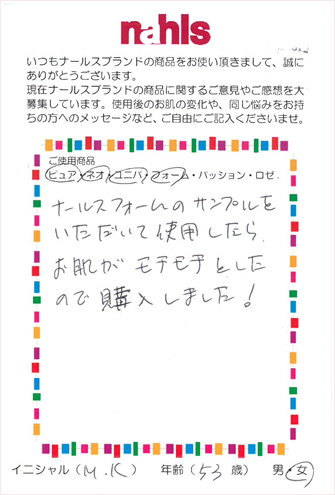 nahls
いつもナールスブランドの商品をお使い頂きまして、誠に
ありがとうございます。
現在ナールスブランドの商品に関するご意見やご感想を大
募集しています。使用後のお肌の変化や、同じ悩みをお持
ちの方へのメッセージなど、ご自由にご記入くださいませ。
ご使用商品
ピュア・ネオ・ユニバ・フォーム・パッション・ロゼ
ナールスフォームのサンプルを
いただいて使用したら
お肌がモチモチとした
ので購入しました!
イニシャル(M.K) 年齢(53歳) 男・女